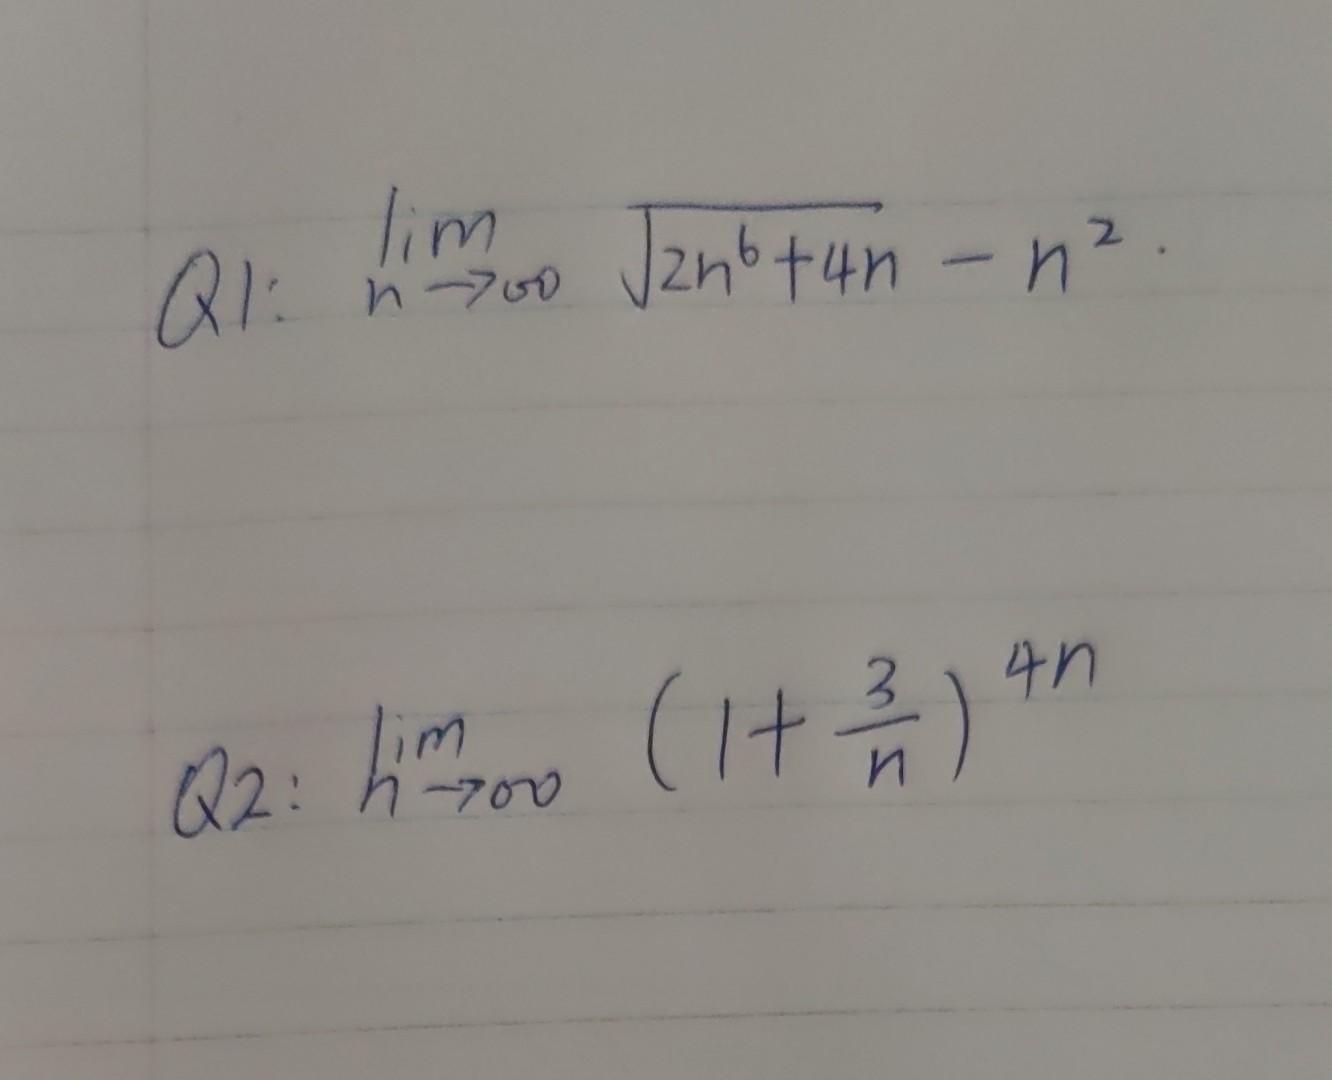 Q1: lim n→∞ √(2n⁶+4n) − n².
Q2: lim n→∞ (1 + 3/n)⁴ⁿ